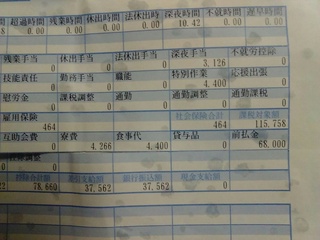 超過時間 残業時間 休出時間 法休出時 深夜時間 不就時間 遅早時間
0.00 0.00 0.00 0.00 10.42 0.00 0.00
残業手当 休出手当 法休出手当 深夜手当 不就労控除
0 0 0 3,126 0
技能責任 勤務手当 職能 特別作業 応援出張
0 0 0 4,400 0
慰労金 課税調整 通勤 通勤調整 通勤課税
0 0 0 0 0
雇用保険 社会保険合計 課税対象額
464 464 115,758
互助会費 寮費 食事代 貸与品 前払金
0 4,266 4,400 0 68,000
0
78,660 37,562 銀行振込額 37,562 現金支給額 0